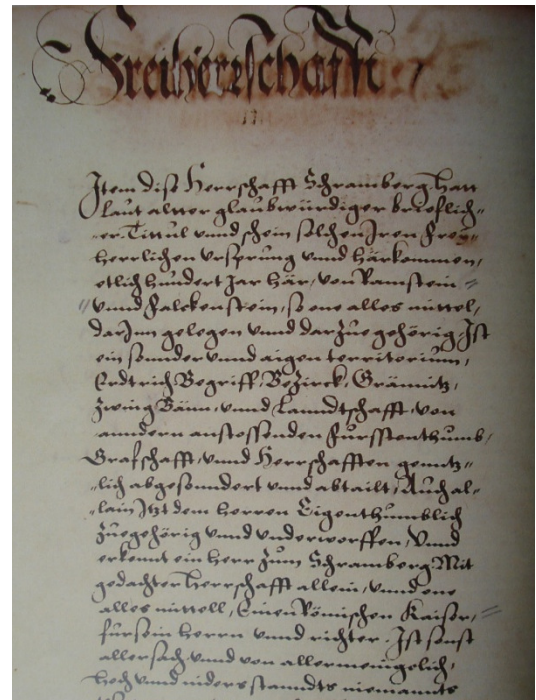 Freiherrschafft
Item dise Herrschafft Schramberg hatt
laut altter glaubwürdiger brieflich„
„er Tittul vnnd schein solchen Jren frey„
herrlichen vrsprung vnnd härkommen,
etlich hundert Jar här, von Ramstein
vnnd Falckenstein, so one alles mittel,
dar Jnn gelegen vnnd dar Zue gehörig, Ist
ein sonder vnnd aigen territorium,
Erdtrich Begriff, Bezirck, Gränitz,
Zwing Bänn, vnnd Lanndtschafft, von
anndern anstossenden Fürsstenthumb,
Grafschafft, vnnd Herrschafften genntz„
„lich abgesonndert vnnd abtailt, Auch al„
„lain Jtzt dem herren Eigenthumblich
Zuegehörig vnnd vnderworffen, Vnnd
erkennt ein herr Zum Schramberg, Mit
gedachter herrschafft allein, vnnd one
alles mittell, Einen Römischen Kaiser,
für sein herrn vnnd richter. Ist sonst
aller sach vnnd von allermenigelich,
hoch vnnd niders stanndts niemants